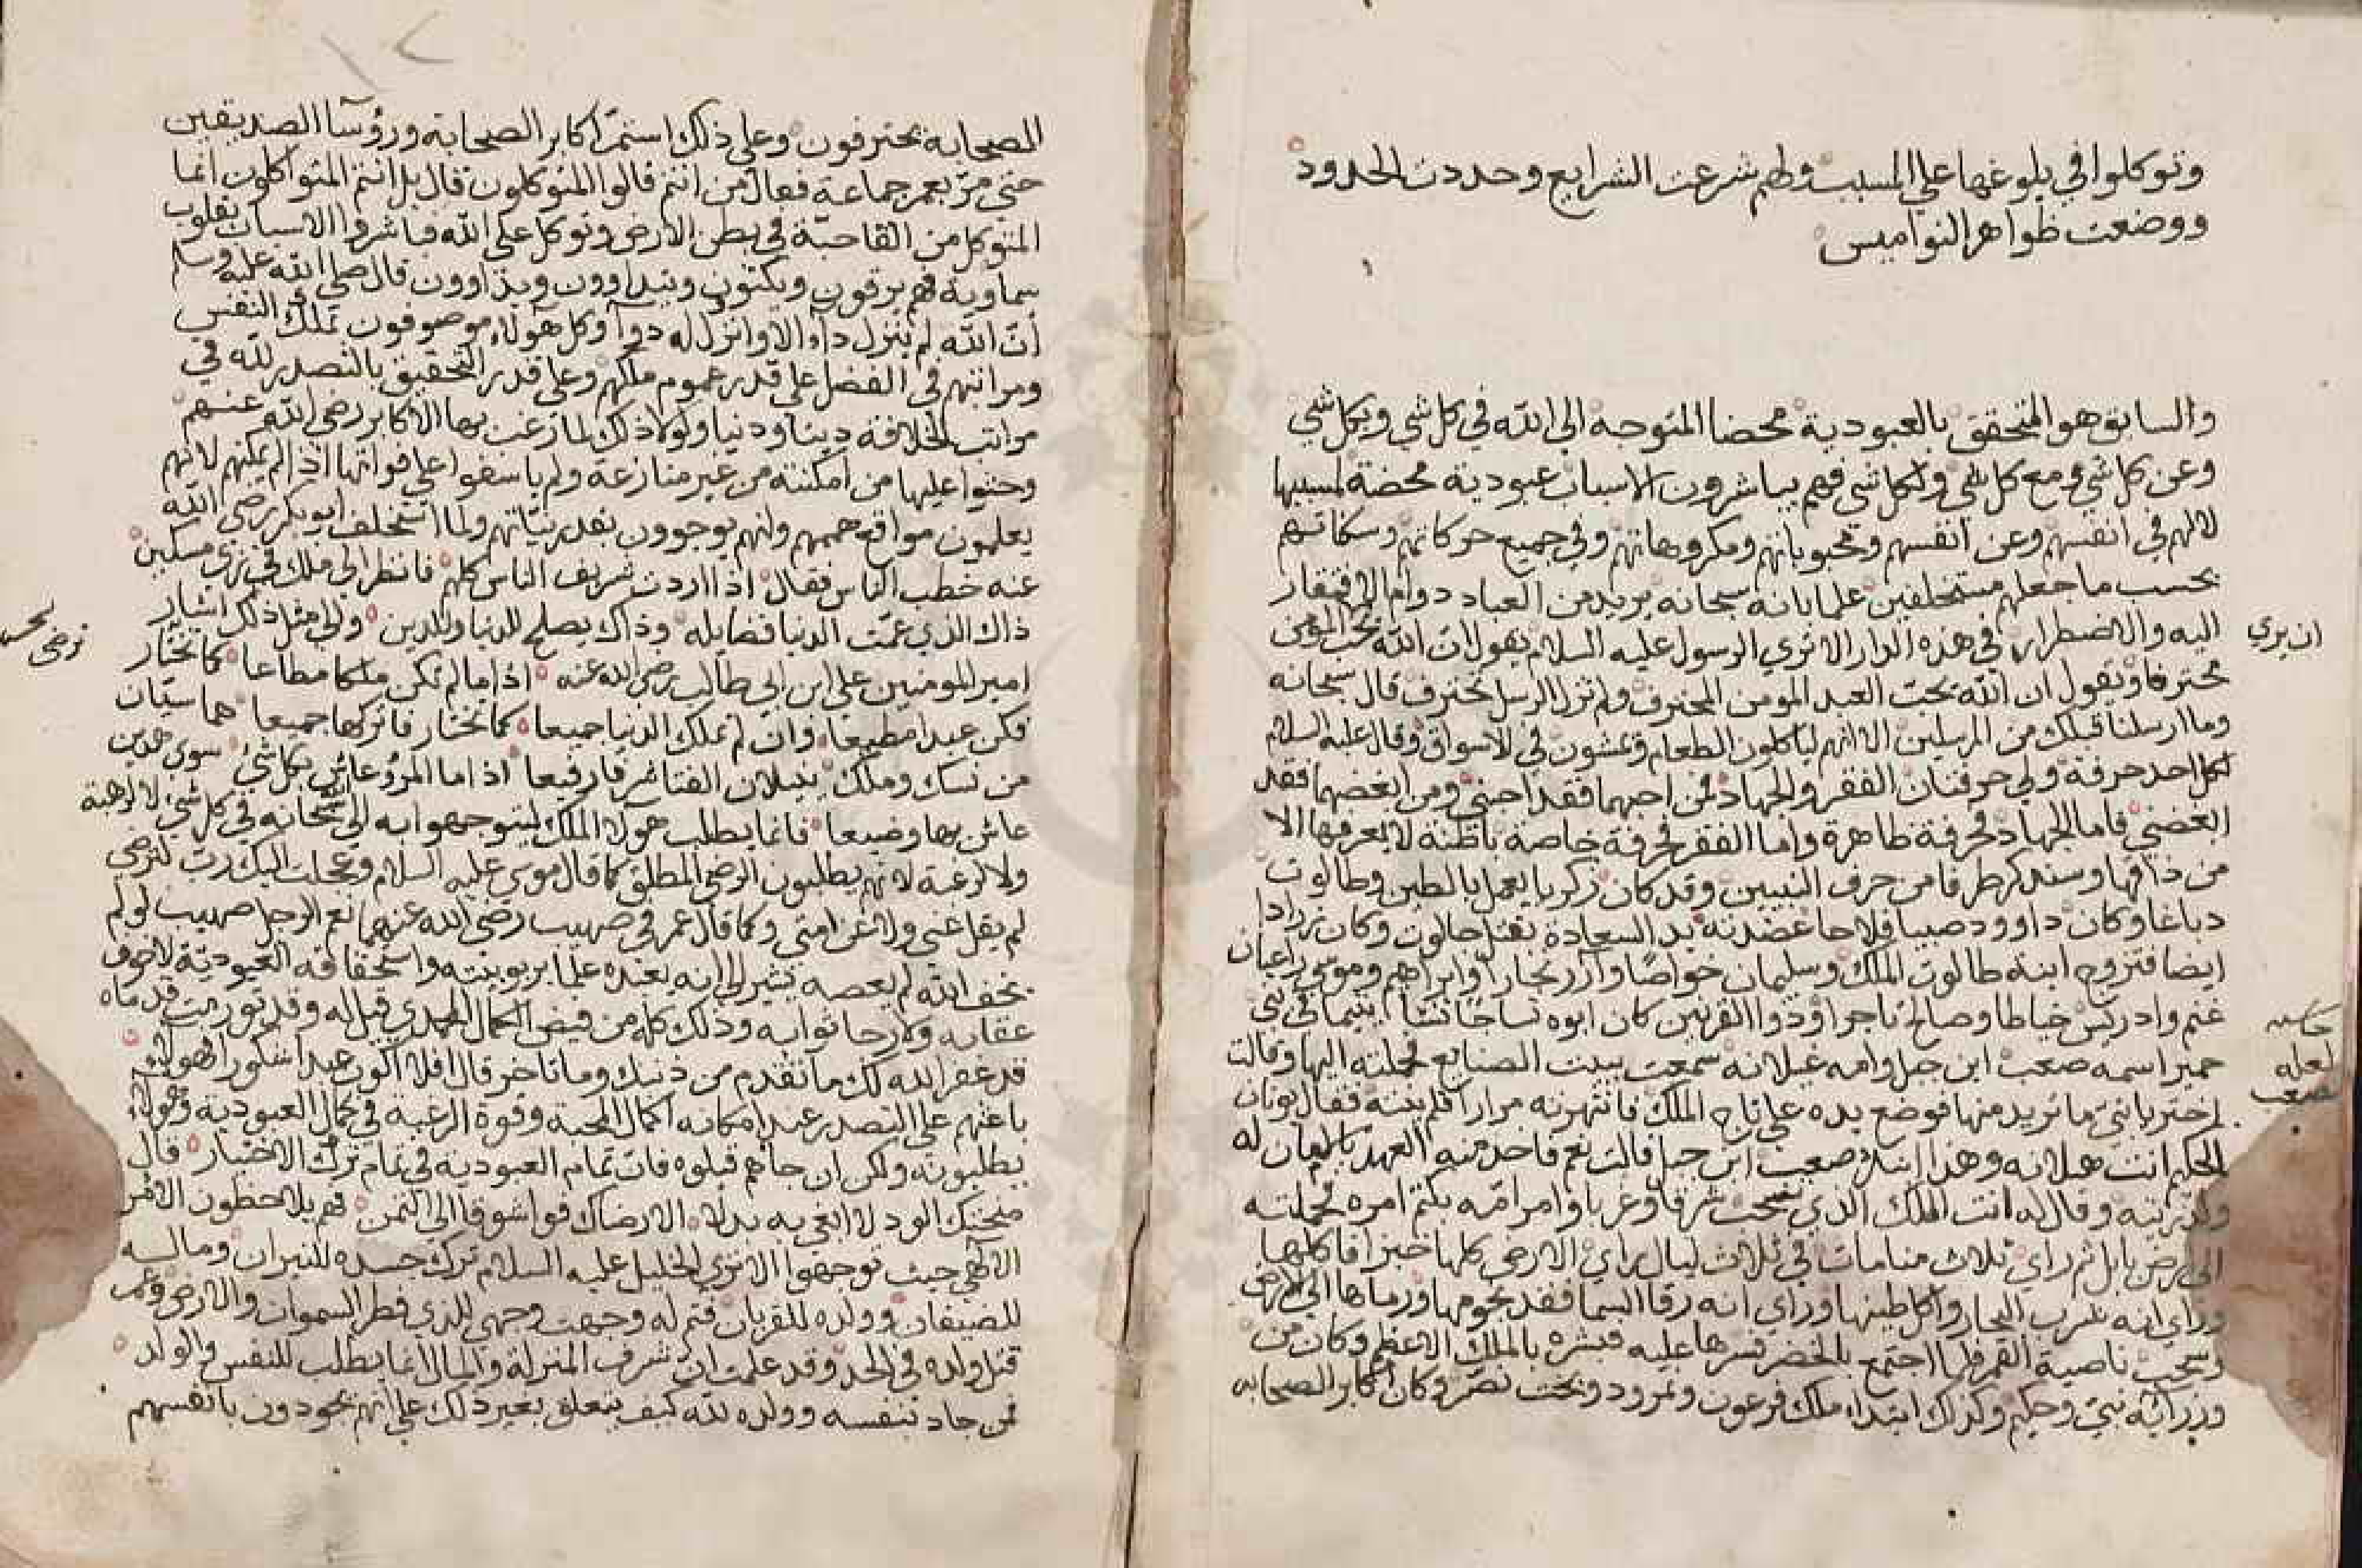 وتوكلوا في بلوغها على المسبب ولهم شرعت الشرايع وحددت الحدود
ووضعت ظواهر النواميس
والسابق هو المتحقق بالعبودية محضا المتوجه الى الله في كل شي وبكل شي
وعن كل شي ومع كل شي ولكل شي فهم يباشرون الاسباب عبودية محضة لمسببها
لا لهم في انفسهم وعن انفسهم ومحبوباتهم ومكروهاتهم وفي جميع حركاتهم وسكناتهم
بحسب ما جعلهم مستخلفين علما بانه سبحانه يريد من العباد دوام الافتقار
اليه والاضطرار في هذه الدار الا ترى الرسول عليه السلام يقول ان الله يحب المومن
ان يرى
محترفا ويقول ان الله يحب العبد المومن المحترف ولم تزل الرسل تحترف قال سبحانه
وما ارسلنا قبلك من المرسلين الا انهم لياكلون الطعام ويمشون في الاسواق وقال عليه السلام
لكل احد حرفة ولي حرفتان الفقر والجهاد فمن احبهما فقد احبني ومن ابغضهما فقد
ابغضني فاما الجهاد فحرفة ظاهرة واما الفقر فحرفة خاصة باطنة لا يعرفها الا
من ذاقها وسنذكر طرفا من حرف النبيين وقد كان زكريا يعمل بالطين وطالوت
دباغا وكان داوود صبيا فلاحا عضدته يد السعادة بقتل جالوت وكان زرادا
ايضا فتزوج ابنة طالوت الملك وسليمان خواصا وآزر نجارا وابراهيم وموسى راعيان
غنم وادريس خياطا وصالح تاجرا وذوا القرنين كان ابوه نساجا نشا يتيما في بني
حمير اسمه صعب ابن جبل وامه غيلانة سمعت ببيت الصنايع فحملته اليها وقالت
لعله
صعب
اختر يا بني ما تريد منها فوضع يده على تاج الملك فانتهرته مرارا فلم ينته فقال يونان
الحكيم انت هيلانه وهذا ابنك صعب ابن جبل قالت نعم فاخذ منه العهد بالامان له
ولذريته وقال له انت الملك الذي تسحب شرقا وغربا وامر امه بكتم امره فحملته
الى ارض بابل ثم راي ثلاث منامات في ثلاث ليال راي الارض كلها خبزا فاكلها
وراي انه شرب البحار واكل طينها وراي انه رقا السما فقد نجومها ورماها الى الارض
وسحب ناصية القمر فلما اجتمع بالخضر فسرها عليه فبشره بالملك الاعظم وكان من
وزرائه نبي وحكيم وكذلك ابتداء ملك فرعون ونمرود وبخت نصر وكان اكابر الصحابه
الصحابه يحترفون وعلى ذلك استمر اكابر الصحابة ورؤسآ الصديقين
حتى مر بعمر جماعة فقال من انتم قالوا المتوكلون قال بل انتم المتواكلون انما
المتوكل من القا حبة في بطن الارض وتوكل على الله فباشروا الاسباب بقلوب
سماوية فهم يرقون ويكتوون ويتداوون ويداوون قال صلى الله عليه وسلم
ان الله لم ينزل دآء الا وانزل له دوآء وكل هولاء موصوفون بملك النفس
ومراتبهم في الفضل على قدر عموم ملكهم وعلى قدر التحقيق بالتصدر لله في
مراتب الخلافة دينا ودنيا ولولا ذلك لما رغب بها الاكابر رضي الله عنهم
وحثوا عليها من امكنته من غير منازعة ولم ياسفوا على فواتها اذا لم يمكنهم لانهم
يعلمون مواقع هممهم وانهم يوجرون بقدر نياتهم ولما استخلف ابو بكر رضي الله
عنه خطب الناس فقال اذا اردت شريف الناس كلهم فانظر الى ملك في زي مسكين
ذاك الذي عمت الدنيا فضايله وذاك يصلح للدنيا وللدين والى مثل ذلك اشار
امير المومنين علي ابن ابي طالب رضي الله عنه اذا ما لم تكن ملكا مطاعا كما تختار
فكن عبدا مطيعا وان لم تملك الدنيا جميعا كما تختار فاتركها جميعا هما سيان
من نسك وملك ينيلان الفتا شرفا رفيعا اذا ما المرؤ عاش بكل شيء سوى هذين
عاش بها وضيعا فانما يطلب هولاء الملك ليتوجهوا به الى الله سبحانه في كل شيء لا لرهبة
ولا لرغبة لانهم يطلبون الرضى المطلق كما قال موسى عليه السلام وعجلت اليك رب لترضى
لم يقل عني ولا عن امتي وكما قال عمر في صهيب رضي الله عنهما نعم الرجل صهيب لو لم
يخف الله لم يعصه يشير الى انه يعبده علما بربوبيته واستحقاقه العبودية لا خوف
عقابه ولا رجا ثوابه وذلك كله من فيض الكمال المحمدي قيل له وقد تورمت قدماه
قد غفر الله لك ما تقدم من ذنبك وما تاخر قال افلا اكون عبدا شكورا فهولاء
باعثهم على التصدر عند امكانه اكمال المحبة وقوة الرغبة في كمال العبودية وهولاء
يطلبونه ولكن ان جاهم قبلوه فان تمام العبودية في تمام ترك الاختيار قال
منحتك الود لا ابغي به بدلا الا رضاك فواشوقا الى الثمن فهم يلاحظون الامر
الالهي حيث توجهوا الا ترى الخليل عليه السلام ترك جسده للنيران وماله
للضيفان وولده للقربان فتم له وجهت وجهي للذي فطر السموات والارض
قتل ولده في الحد وقد علمت ان شرف المنزلة والمال انما يطلب للنفس والولد
فمن جاد بنفسه وولده لله كيف يتعلق بغير ذلك على انهم يجودون بانفسهم